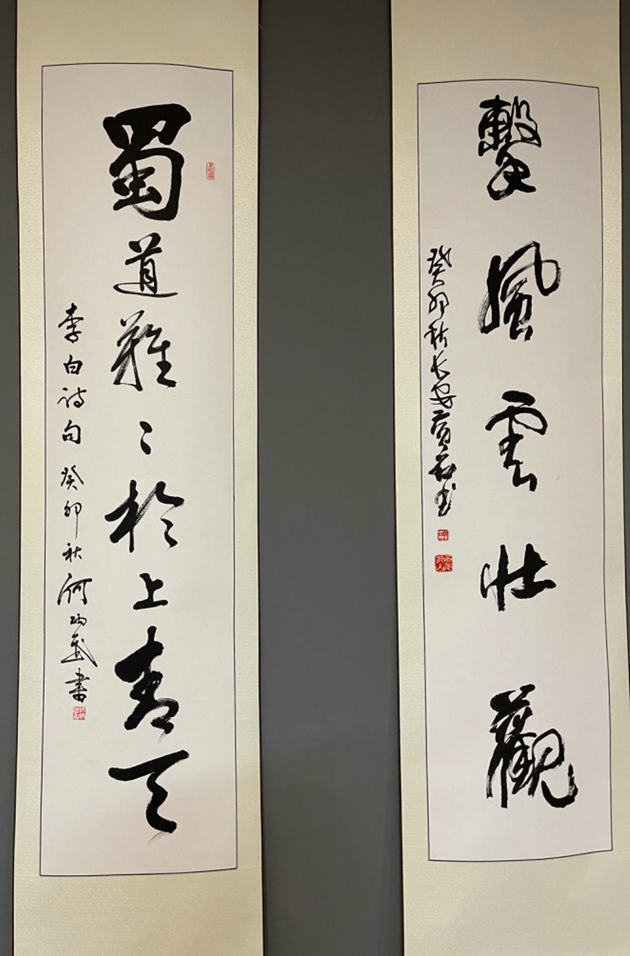 擊風雲壯觀
癸卯秋长安黄书
蜀道難々於上青天
李白诗句 癸卯秋何炳武書